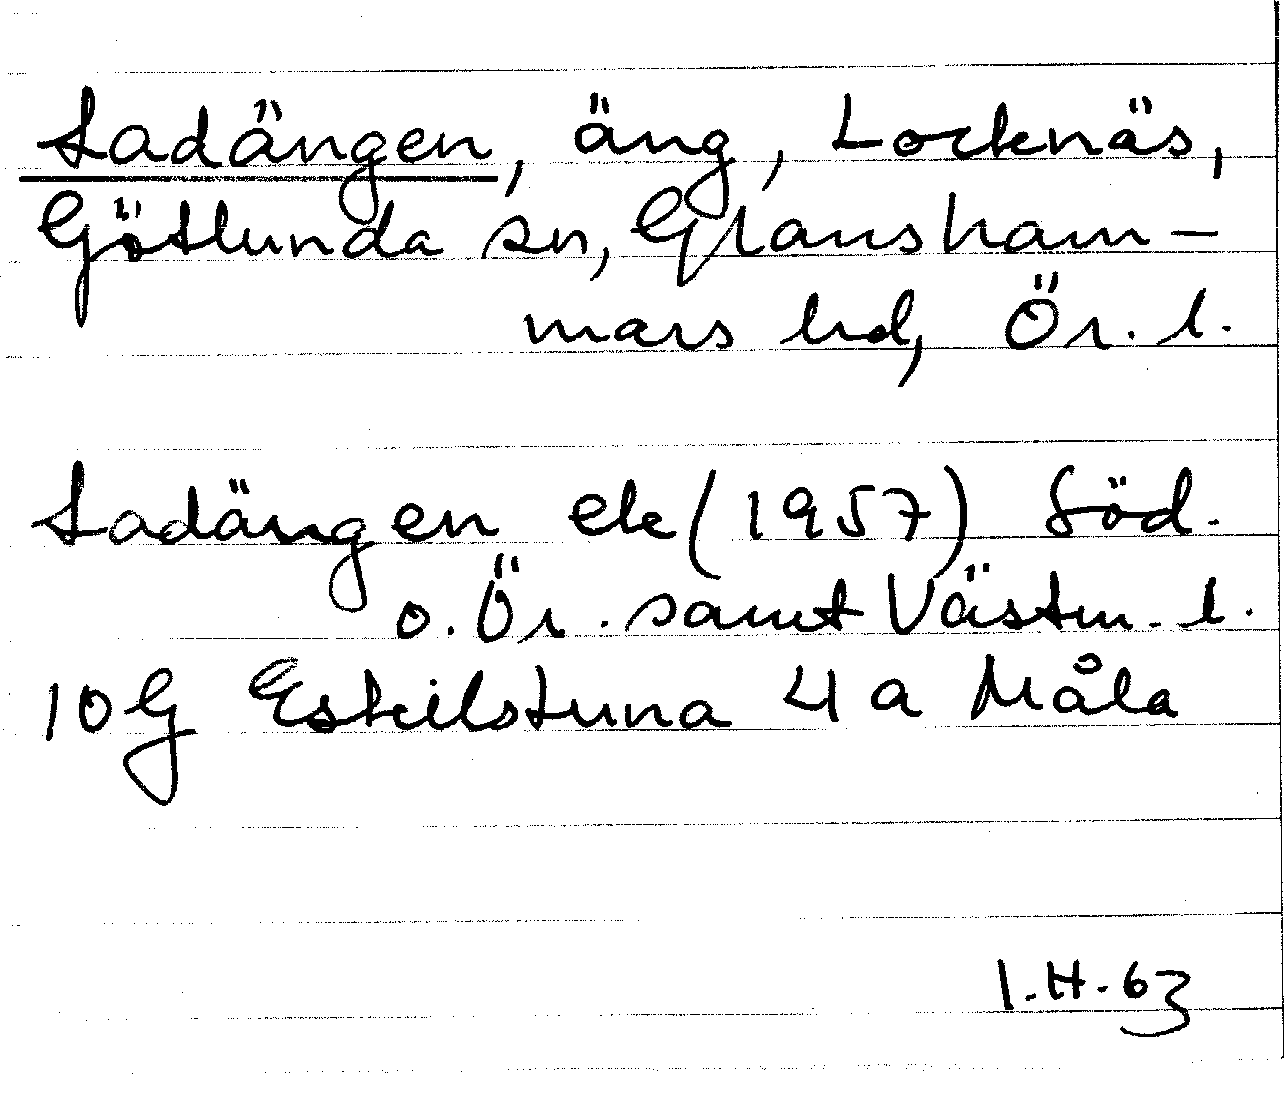 Ladängen, äng, Locknäs,
Götlunda sn, Glansham-
mars hd, Ör. l.
Ladängen ek (1957) Söd.
o. Ör. samt Västm. l.
10 G Eskilstuna 4 a Måla
I.H.63